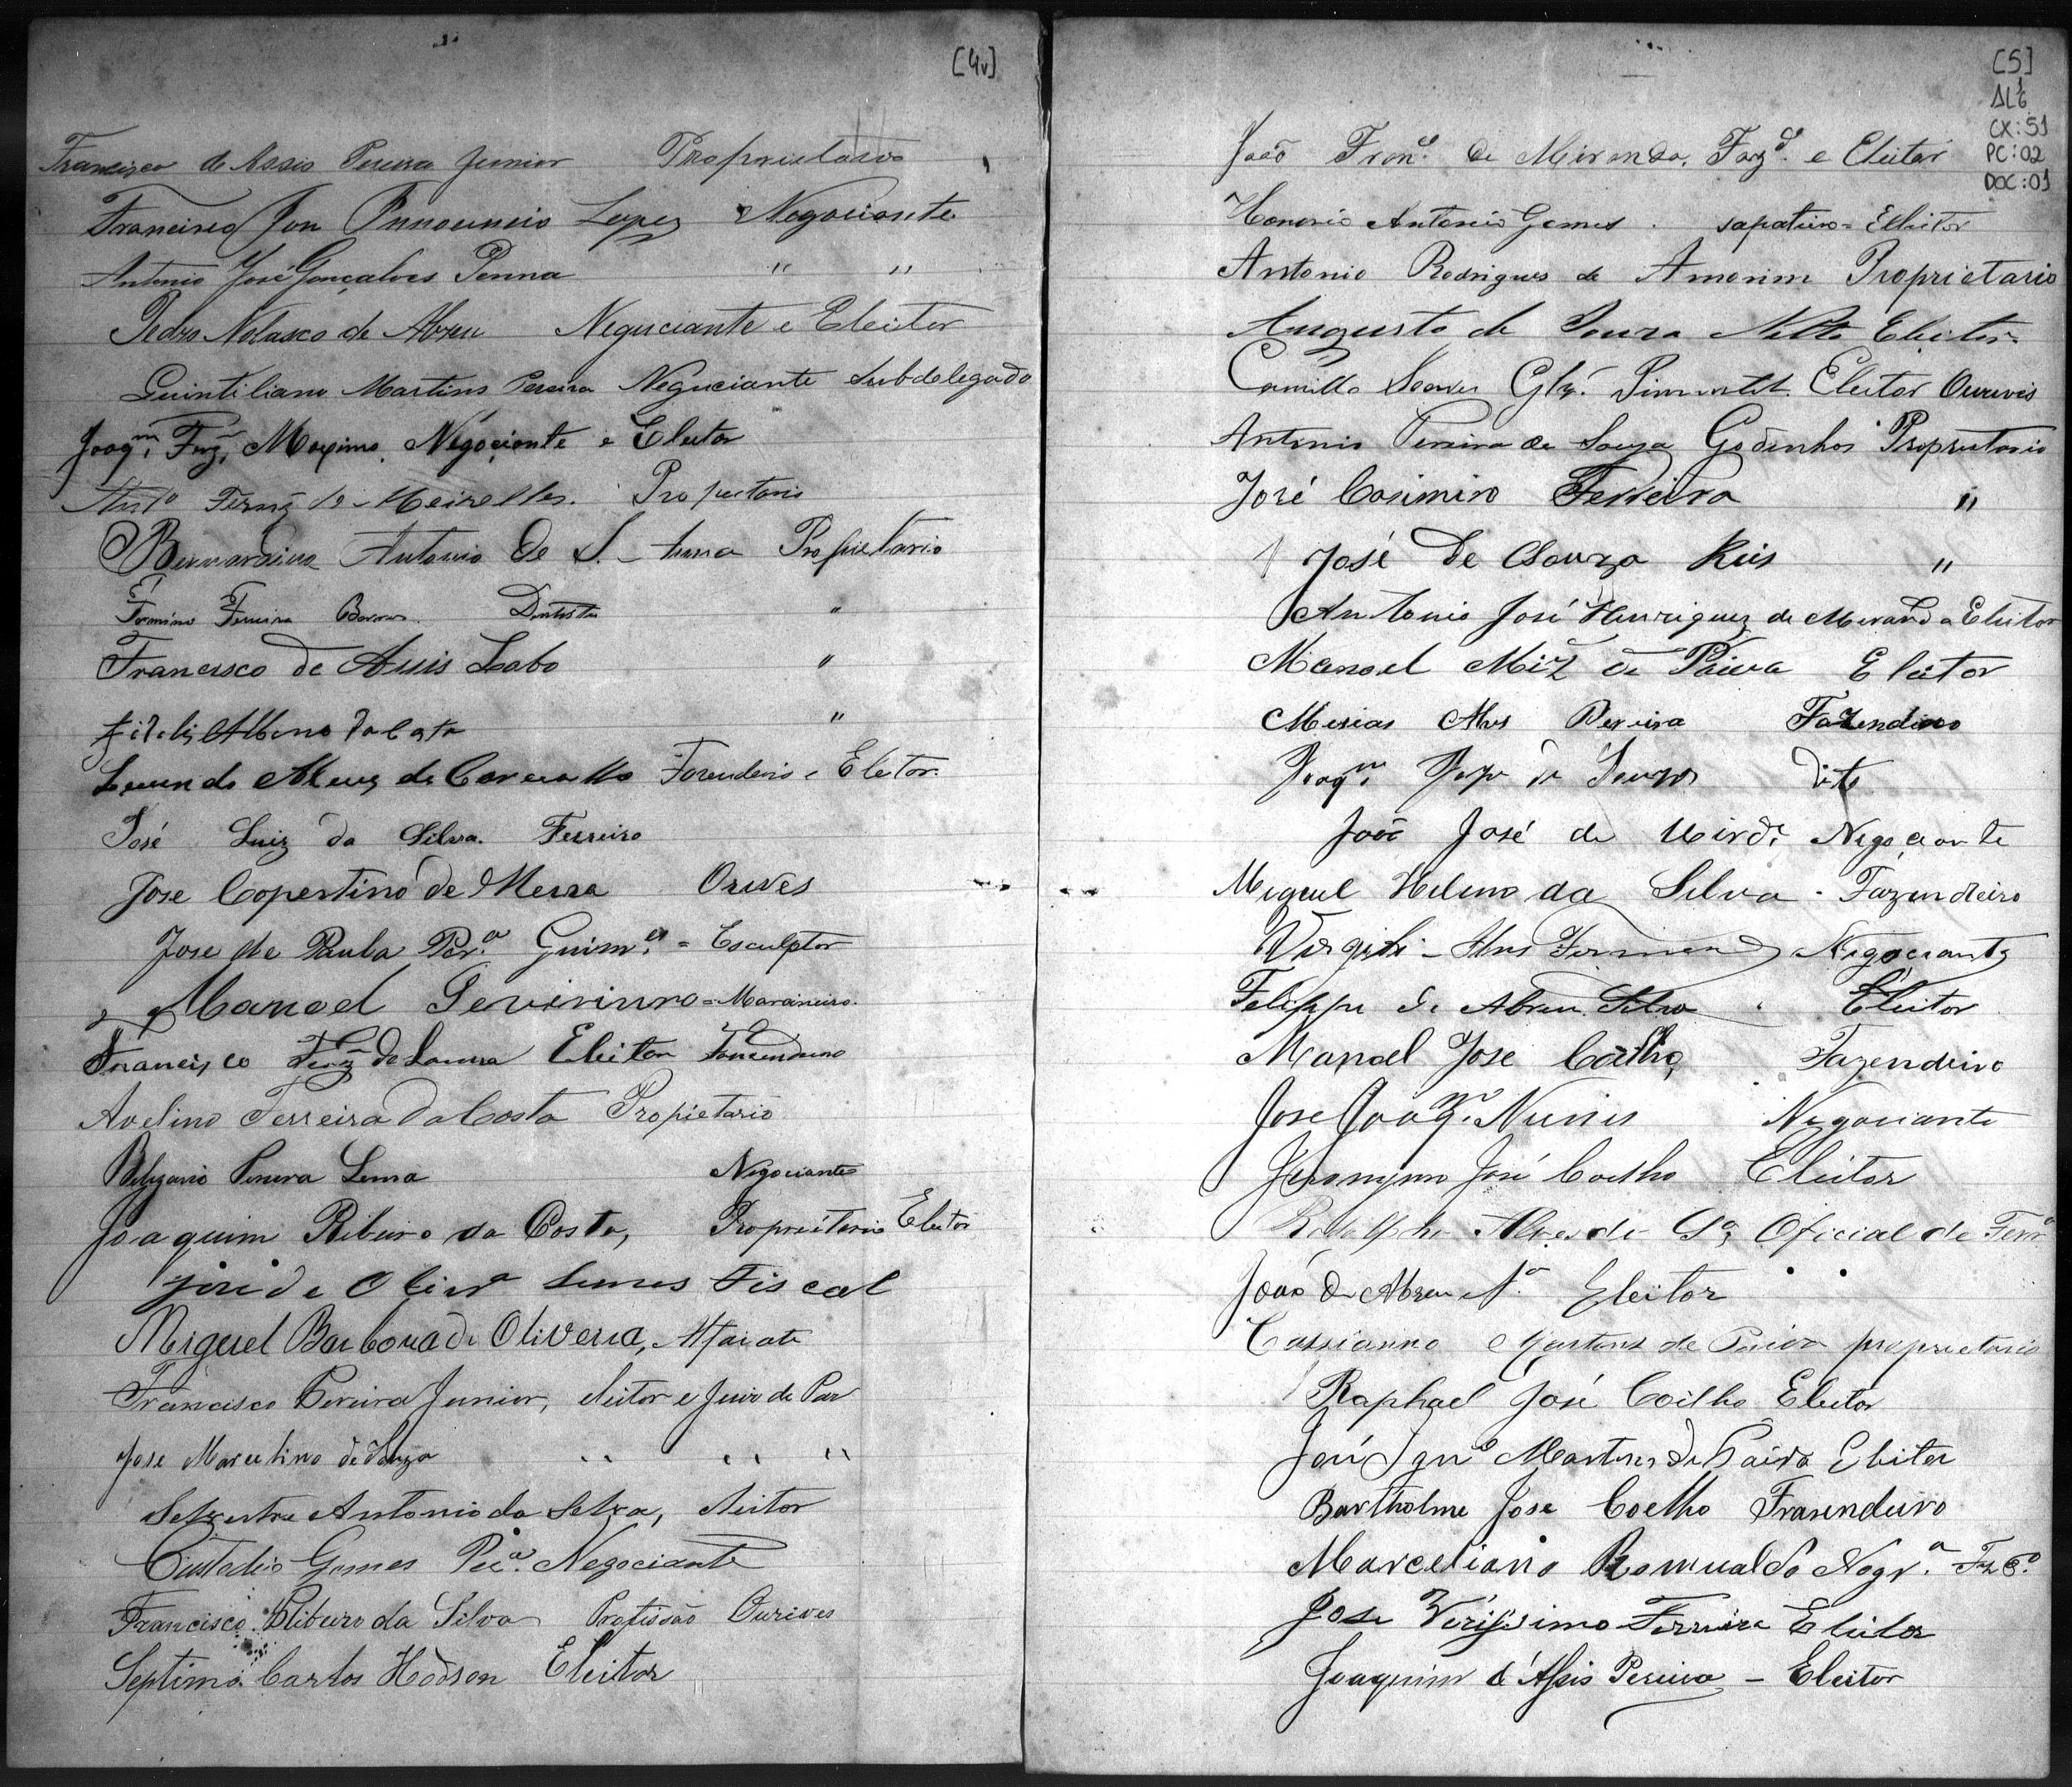 [4v]
Francisco de Assis Pereira Junior Proprietario
Francisco Jose Pennouncio Lopes Negociante
Antonio José Gonçalves Penna " "
Pedro Nolasco de Abreu Neguciante e Eleitor
Quintiliano Martins Pereira Neguciante Subdelegado
Joaqm. Frz. Maximo. Negociante e Eleitor
Anto Fernz de Meirelles. Propietario
Bernardino Antonio de S. Anna Propietario
Fermino Ferreira Barros. Dentista "
Francisco de Assis Lobo "
Fidelis Albino da Costa "
Alves de Carvalho Fazendeiro e Eleitor.
José Luiz da Silva. Ferreiro
Jose Copertino de Meira Orives
Jose de Paula Per.a Guim.es = Esculptor
Manoel Severiano = Marcineiro.
Francisco Ferz de Souza Eleitor Fazendeiro
Avelino Ferreira da Costa Propietario
Beligario Pereira Lema Negociante
Joaquim Ribeiro da Costa, Proprietario Eleitor
José de Olivra Lemes Fiscal
Miguel Barboza de Oliveira, Alfaiate
Francisco Pereira Junior, eleitor e Juiz de Paz
Jose Marcelino de Souza " " "
Selvestre Antonio da Selva, eleitor
Custodio Gomes Per.a Negociante
Francisco Ribeiro da Silva Profissão Ourives
Septimo Carlos Hodson Eleitor
[5]
AL6
CX:51
PC:02
DOC:01
João Fran.co de Miranda. Fazd.o e Eleitor
Honorio Antonio Gomes. sapateiro = Elleitor
Antonio Rodrigues de Amorim Proprietario
Augusto de Souza Netto Eleitor
Camillo Soares Glz. Pimentel. Eleitor Ourives
Antonio Pereira de Souza Godinhos Proprietario
José Casimiro Ferreira "
José de Souza Reis "
Antonio José Henriques de Miranda Eleitor
Manoel Miz de Paiva Eleitor
Mesias Alves Pereira Fazendeiro
Joaqm. José de Souza dito
João José de Mirda. Negociante
Miguel Heleno da Silva - Fazendeiro
Virgilio Alves Fernandes Negociante
Felippe de Abreu Silva Eleitor
Manoel Jose Coelho Fazendeiro
Jose Joaqm. Nunes Negociante
Jeronymo José Coelho Eleitor
Rodolpho Alves de Sa. Oficial de Ferro
João de Abreu Sa. Eleitor
Cassianno Martins de Paiva proprietario
Raphael José Coelho Eleitor
José Ignco Martins de Paiva Eleitor
Bartholme Jose Coelho Frasendeiro
Marceliano Romualdo Nogr.a Fzdo.
Jose Verissimo Ferreira Eleitor
Joaquim d'Assis Pereira - Eleitor